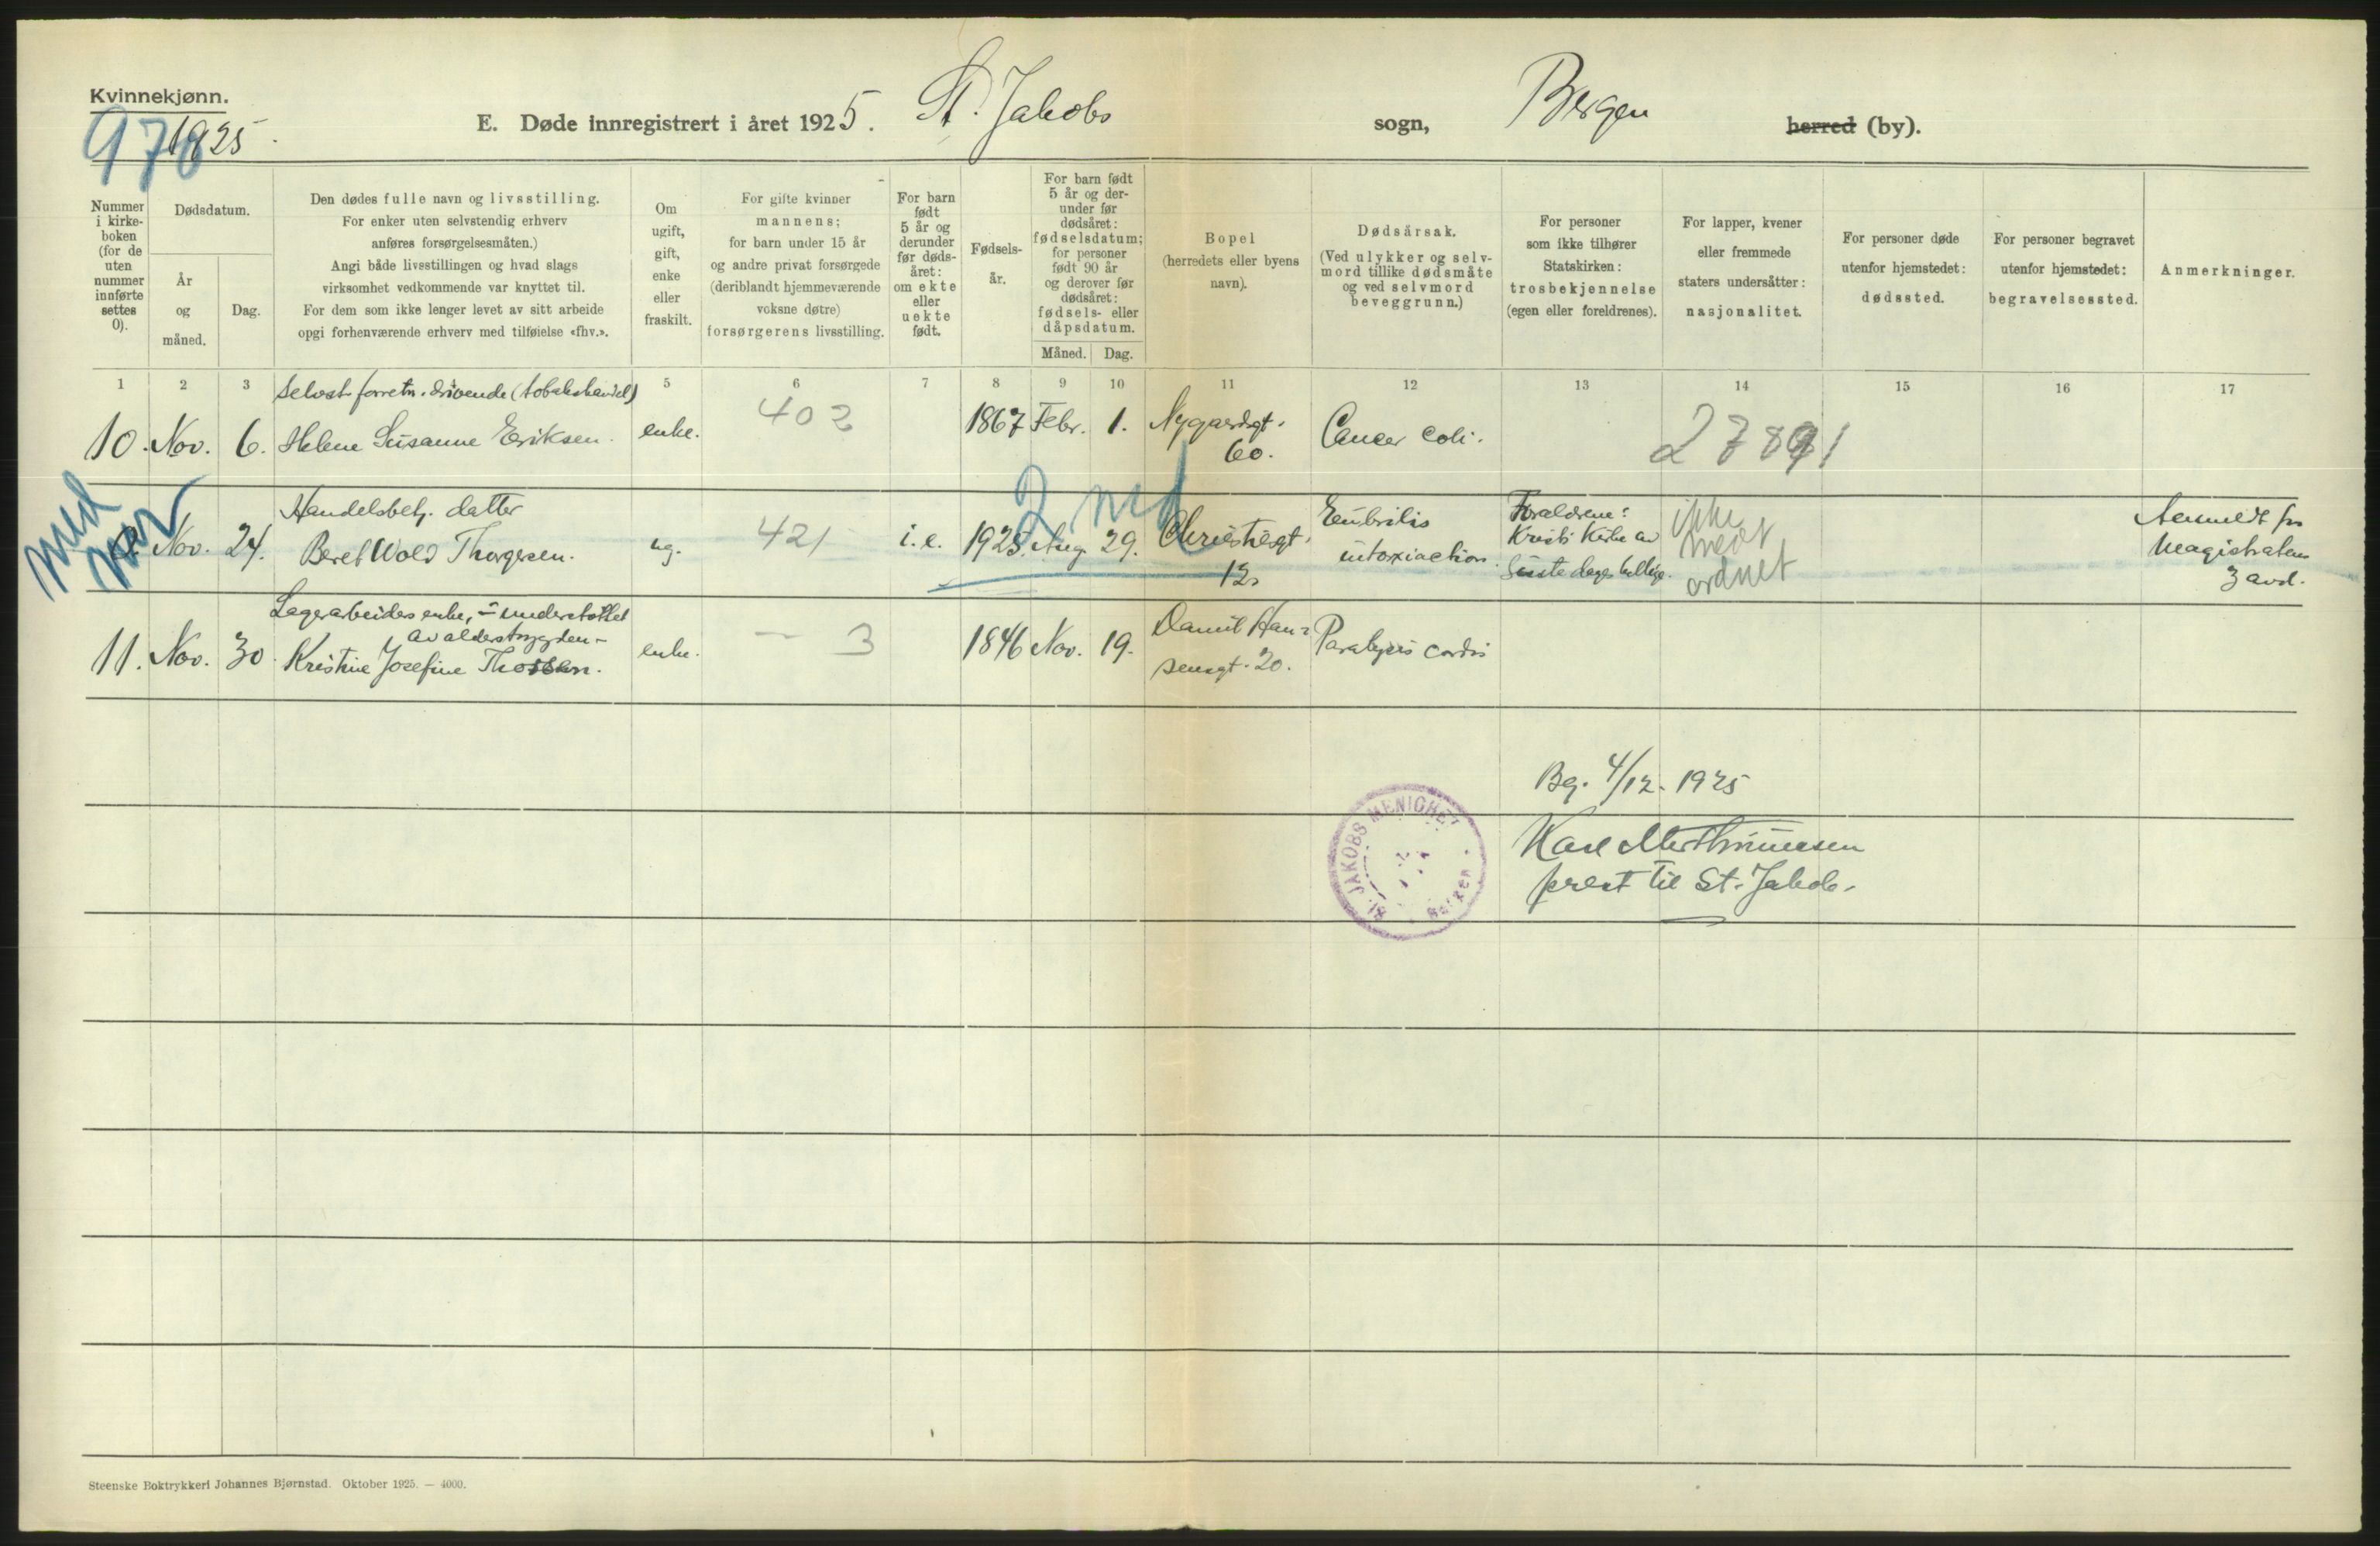 Kvinnekjønn.
978
1925.
E. Døde innregistrert i året 1925. St. Jakobs sogn, Bergen herred (by).
Nummer i kirke-boken (for de uten nummer innførte settes 0).
Dødsdatum.
År og måned.
Dag.
Den dødes fulle navn og livsstilling.
For enker uten selvstendig erhverv
anføres forsørgelsesmåten.)
Angi både livsstillingen og hvad slags
virksomhet vedkommende var knyttet til.
For dem som ikke lenger levet av sitt arbeide
opgi forhenværende erhverv med tilføielse «fhv.».
Om ugift, gift, enke eller fraskilt.
For gifte kvinner
mannens;
for barn under 15 år
og andre privat forsørgede
(deriblandt hjemmeværende
voksne døtre)
forsørgerens livsstilling.
For barn født 5 år og derunder før døds-året: om ekte eller uekte født.
Fødsels-år.
For barn født
5 år og der-
under før
dødsåret:
fødselsdatum;
for personer
født 90 år
og derover før
dødsåret:
fødsels- eller
dåpsdatum.
Måned. Dag.
Bopel
(herredets eller byens
navn).
Dødsårsak.
(Ved ulykker og selv-
mord tillike dødsmåte
og ved selvmord
beveggrunn.)
For personer
som ikke tilhører
Statskirken:
trosbekjennelse
(egen eller foreldrenes).
For lapper, kvener
eller fremmede
staters undersåtter:
nasjonalitet.
For personer døde
utenfor hjemstedet:
dødssted.
For personer begravet
utenfor hjemstedet:
begravelsessted.
Anmerkninger.
1 2 3 5 6 7 8 9 10 11 12 13 14 15 16 17
Selvst. forretn. drivende (tobakshandel)
10. Nov. 6. Helene Susanne Eriksen. enke. 402 1867 Febr. 1. Nygaardsgt. 60. Cancer coli. 27891
med
Handelsbetj. datter
Nov. 24. Beret Wold Thorgersen. ug. 421 i.e. 1925. Aug. 29. Christiesgt. 12.
2 md
intoxiaction.
Foraldrene:
Kristi Kirke av
Siste dages hellige.
ikke
medt
ordnet
Anmeldt fra
Magistratens
3 avd.
Lagerarbeides enke, - understøttet
av alderstrygden -
11. Nov. 30. Kristine Josefine Thorsen. enke. — 3 1846 Nov. 19. Damit Han-
sensgt. 20. Paralysis cordis
Bg. 4/12. 1925
Karl
prest til St. Jakob.
St. JAKOBS MENIGHET
Bergen
Steenske Boktrykkeri Johannes Bjørnstad. Oktober 1925. — 4000.